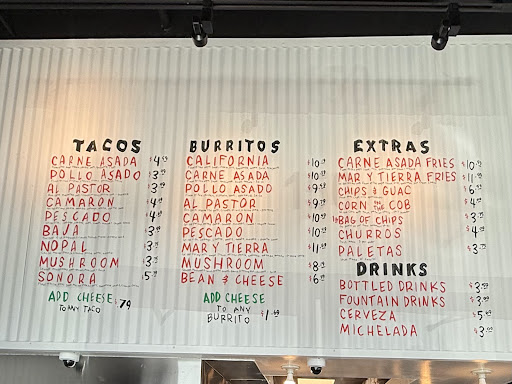 TACOS
CARNE ASADA $4
POLLO ASADO $3
AL PASTOR $3
CAMARÓN $4
PESCADO $4
BAJA $3
NOPAL $3
MUSHROOM $3
SONORA $5
ADD CHEESE .79
TO ANY TACO
BURRITOS
CALIFORNIA $10
CARNE ASADA $10
POLLO ASADO $9
AL PASTOR $9
CAMARÓN $10
PESCADO $10
MAR Y TIERRA $11
MUSHROOM $8
BEAN & CHEESE $6
ADD CHEESE
TO ANY
BURRITO $1
EXTRAS
CARNE ASADA FRIES $10
MAR Y TIERRA FRIES $11
CHIPS & GUAC $6
CORN ON THE COB $4
BAG OF CHIPS $3
CHURROS $4
PALETAS $3
DRINKS
BOTTLED DRINKS $3
FOUNTAIN DRINKS $3
CERVEZA $5
MICHELADA $3